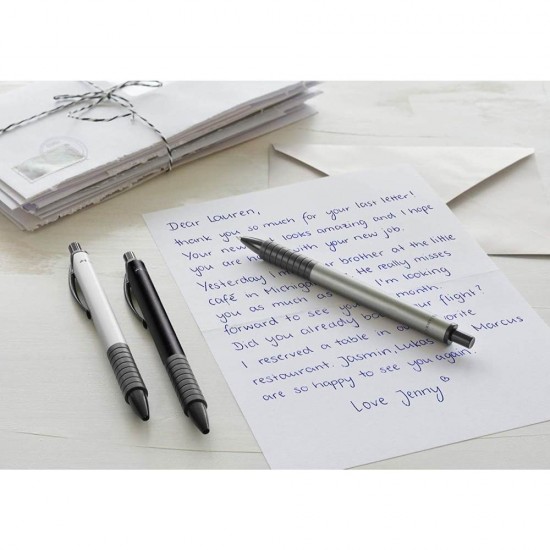 Dear Lauren,
thank you so much for your last letter!
Your new looks amazing and I hope
you are h with your new job.
Yesterday I m r brother at the little
café in Michiga He really misses
you as much as I'm looking
forward to see you month.
Did you already boo our flight?
I reserved a table in a vorite
restaurant. Jasmin, Lukas Marcus
are so happy to see you again.
Love Jenny